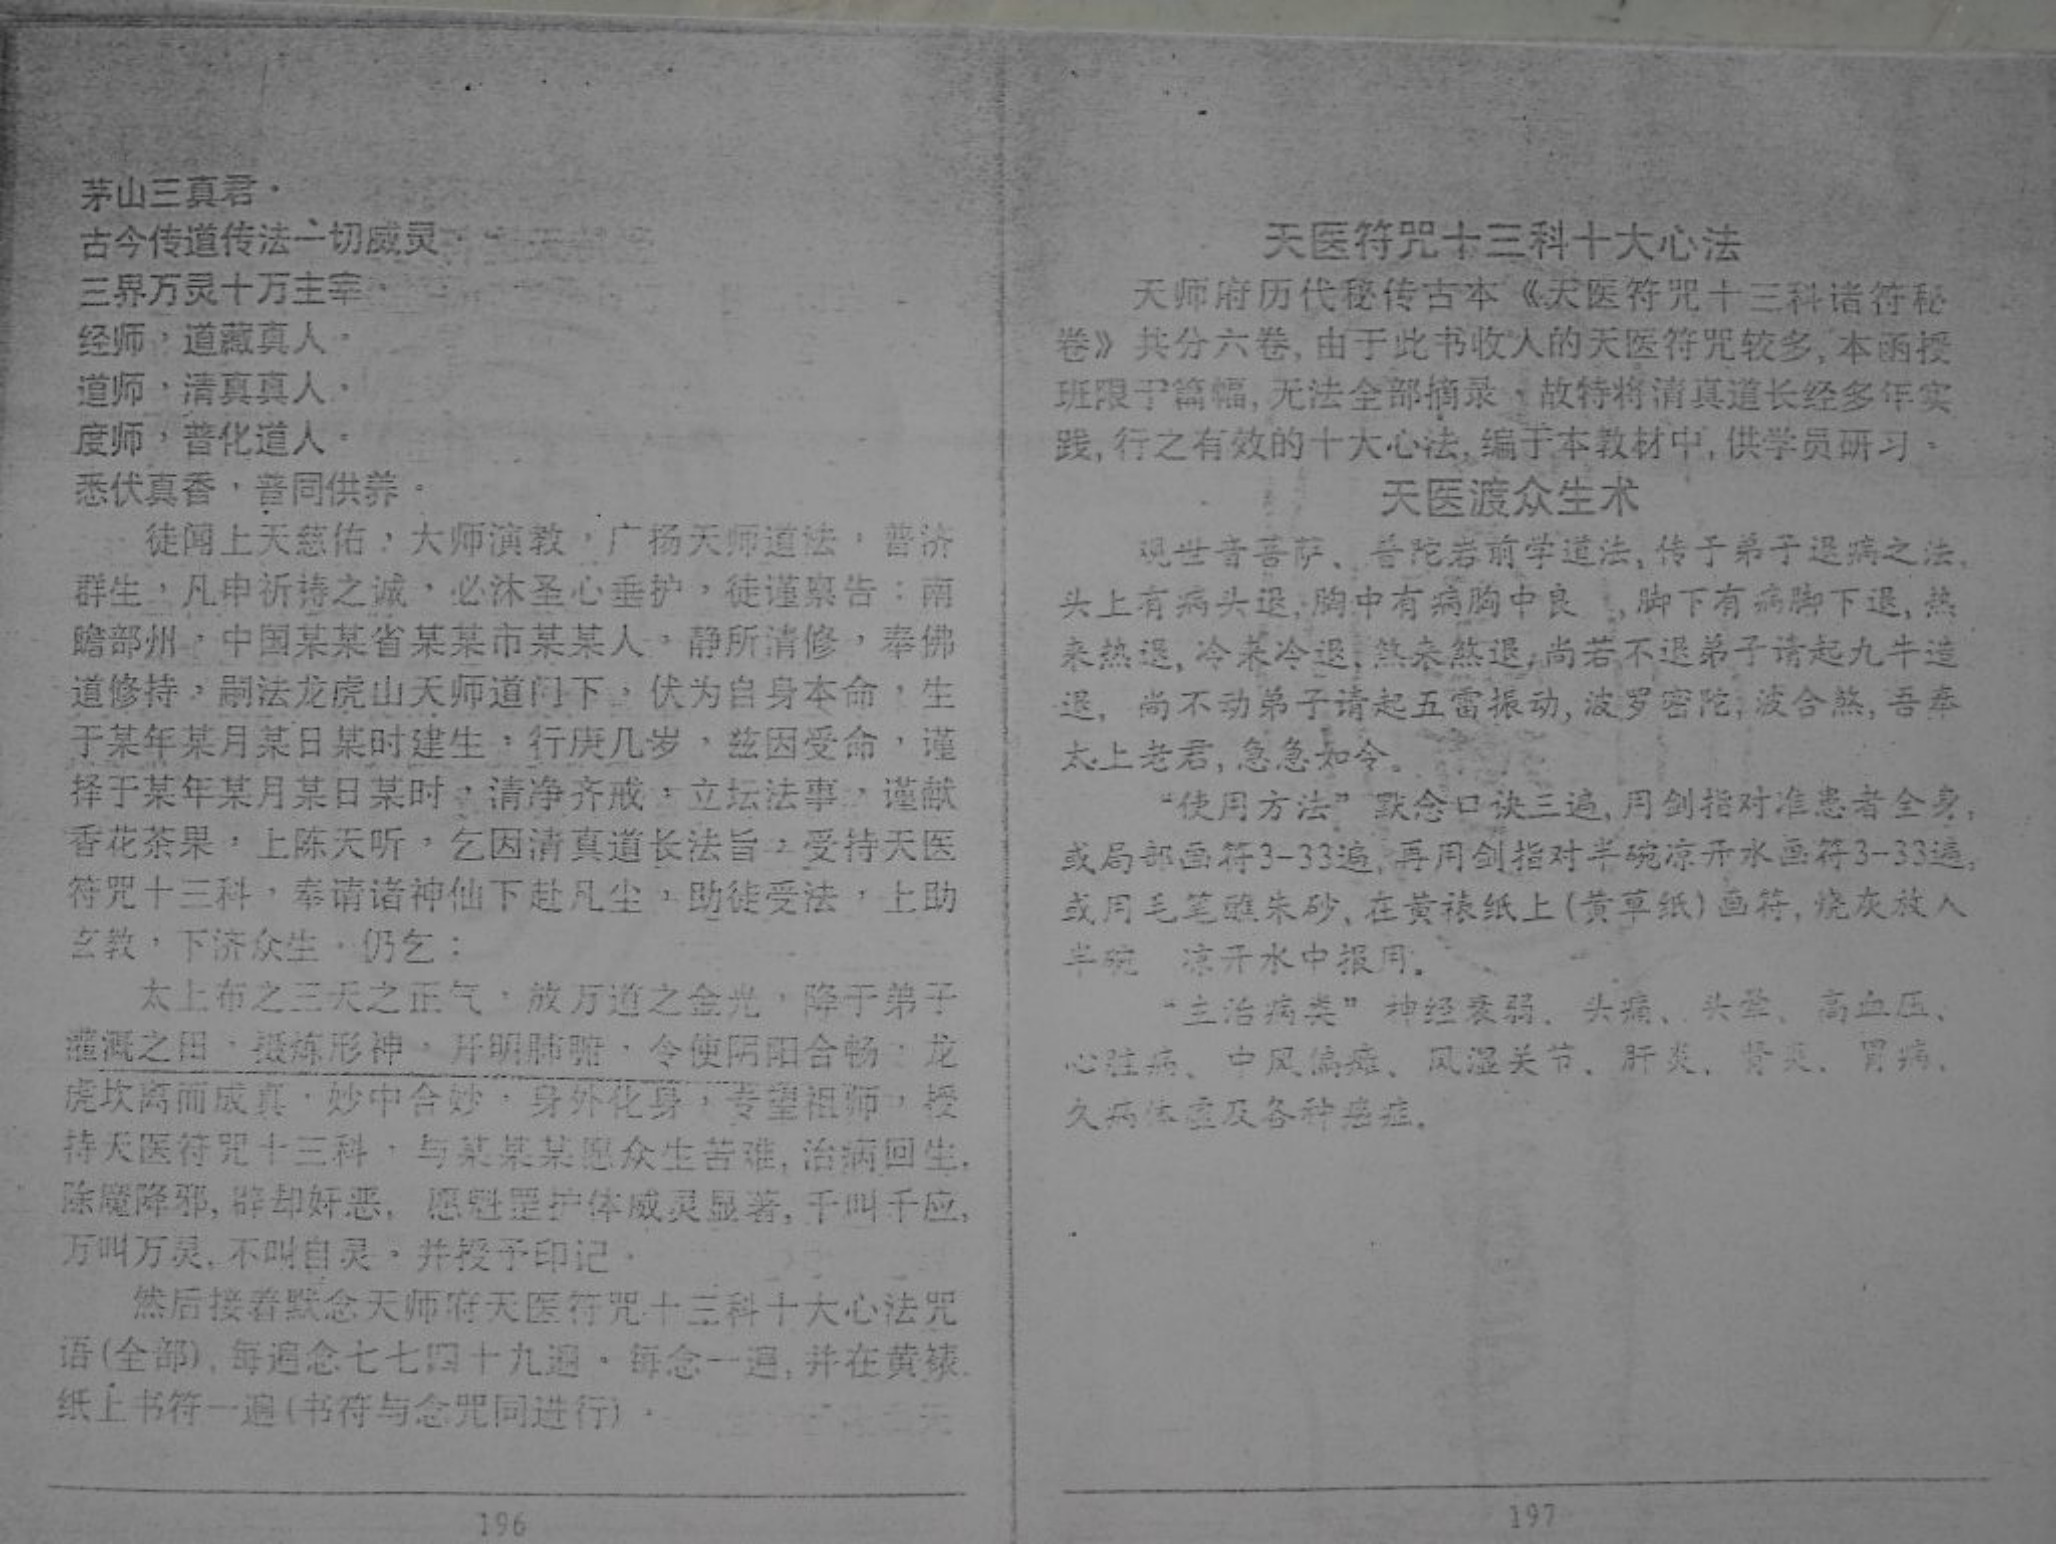 茅山三真君。
古今传道传法一切威灵。
三界万灵十万主宰。
经师，道藏真人。
道师，清真真人。
度师，普化道人。
悉伏真香，普同供养。
徒闻上天慈佑，大师演教，广扬天师道法，普济
群生，凡申祈祷之诚，必沐圣心垂护，徒谨禀告：南
瞻部州，中国某某省某某市某某人，静所清修，奉佛
道修持，嗣法龙虎山天师道门下，伏为自身本命，生
于某年某月某日某时建生，行庚几岁，兹因受命，谨
择于某年某月某日某时，清净齐戒，立坛法事，谨献
香花茶果，上陈天听，乞因清真道长法旨，受持天医
符咒十三科，奉请诸神仙下赴凡尘，助徒受法，上助
玄教，下济众生。仍乞：
太上布之三天之正气，放万道之金光，降于弟子
灌溉之田，摄炼形神，开明肺腑，令使阴阳合畅，龙
虎坎离而成真，妙中合妙，身外化身，专望祖师，授
持天医符咒十三科，与某某某愿众生苦难,治病回生,
除魔降邪,辟却奸恶,愿魁罡护体威灵显著,千叫千应,
万叫万灵,不叫自灵。并授予印记。
然后接着默念天师府天医符咒十三科十大心法咒
语(全部),每遍念七七四十九遍。每念一遍,并在黄裱
纸上书符一遍(书符与念咒同进行)。
196
天医符咒十三科十大心法
天师府历代秘传古本《天医符咒十三科诸符秘
卷》共分六卷,由于此书收入的天医符咒较多,本函授
班限于篇幅,无法全部摘录，故特将清真道长经多年实
践,行之有效的十大心法,编于本教材中,供学员研习。
天医渡众生术
观世音菩萨、普陀岩前学道法,传于弟子退病之法,
头上有病头退,胸中有病胸中良 ,脚下有病脚下退,热
来热退,冷来冷退,煞来煞退,尚若不退弟子请起九牛造
退, 尚不动弟子请起五雷振动,波罗密陀,波合煞,吾奉
太上老君,急急如令。
“使用方法”默念口诀三遍,用剑指对准患者全身,
或局部画符3-33遍,再用剑指对半碗凉开水画符3-33遍,
或用毛笔醮朱砂,在黄裱纸上(黄草纸)画符,烧灰放入
半碗 凉开水中报用。
“主治病类”神经衰弱、头痛、头晕、高血压、
心脏病、中风偏瘫、风湿关节、肝炎、肾炎、胃病、
久病体虚及各种癌症。
197